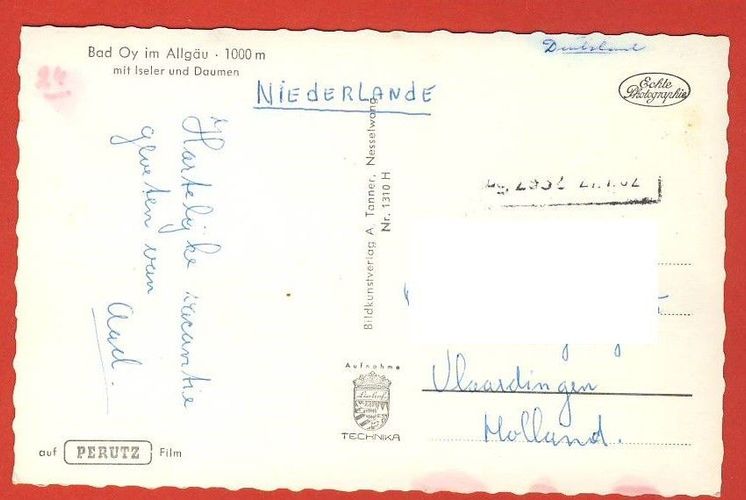 Bad Oy im Allgäu · 1000 m
mit Iseler und Daumen
24
NIEDERLANDE
Hartelijke vacantie
groeten van
Aad.
Bildkunstverlag A. Tanner, Nesselwang
Nr. 1310 H
Echte
Photographie
Aufnahme
TECHNIKA
Vlaardingen
Holland.
auf PERUTZ Film